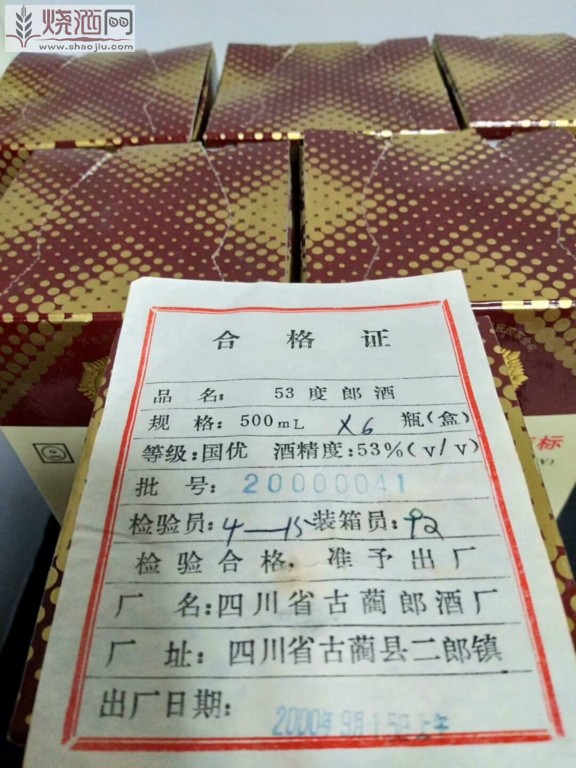 烧酒网
www.shaojiu.com
合格证
品名: 53度郎酒
规格: 500mL X6 瓶(盒)
等级:国优 酒精度:53%(v/v)
批号: 20000041
检验员: 4—15 装箱员: 12
检验合格,准予出厂
厂名:四川省古蔺郎酒厂
厂址: 四川省古蔺县二郎镇
出厂日期: 2000年9月15日上午
标